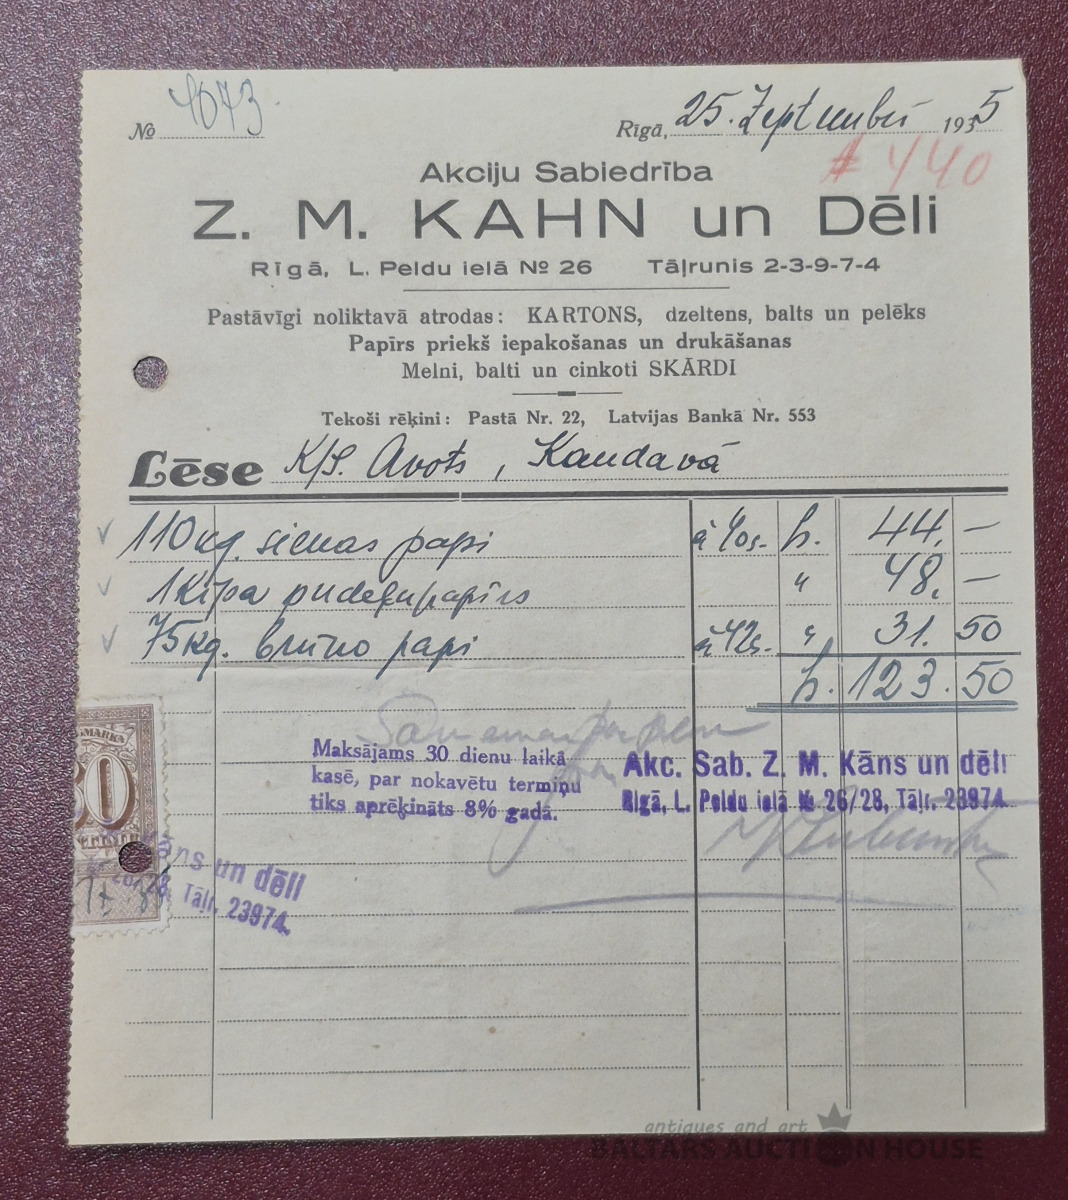 № 4073.
Rīgā, 25. Septembrī 1935
# 440
Akciju Sabiedrība
Z. M. KAHN un Dēli
Rīgā, L. Peldu ielā № 26 Tāļrunis 2-3-9-7-4
Pastāvīgi noliktavā atrodas: KARTONS, dzeltens, balts un pelēks
Papīrs priekš iepakošanas un drukāšanas
Melni, balti un cinkoti SKĀRDI
Tekoši rēķini: Pastā Nr. 22, Latvijas Bankā Nr. 553
Lēse K/S. Avots, Kandavā
110 kg. sienas papī à 40s. Ls. 44.—
1 Ķīpa pudeļu papīrs " 48.—
75 kg. brūno papī à 42s. " 31.50
Ls. 123.50
MARKA
Maksājams 30 dienu laikā
kasē, par nokavētu termiņu
tiks aprēķināts 8% gadā.
Akc. Sab. Z. M. Kāns un dēli
Rīgā, L. Peldu ielā № 26/28, Tāļr. 23974.
Kāns un dēli
26/28, Tāļr. 23974.
antiques and art
BALTARS AUCTION HOUSE